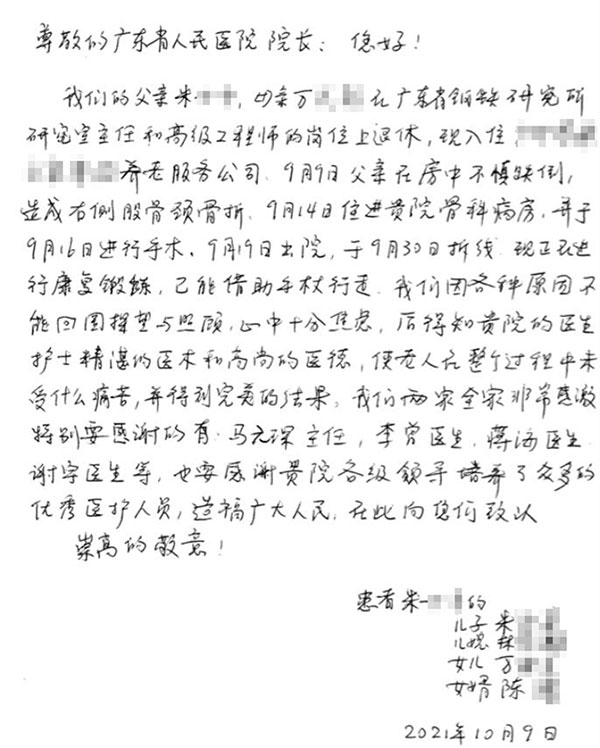 尊敬的广东省人民医院院长：您好！
我们的父亲朱，母亲万在广东省钢铁研究所
研究室主任和高级工程师的岗位上退休，现入住
养老服务公司。9月9日父亲在房中不慎跌倒，
造成右侧股骨颈骨折。9月14日住进贵院骨科病房，并于
9月16日进行手术、9月19日出院，于9月30日拆线。现正在进
行康复锻炼，已能借助手杖行走。我们因各种原因不
能回国探望与照顾，心中十分焦虑，后得知贵院的医生
护士精湛的医术和高尚的医德，使老人在整个过程中未
受什么痛苦，并得到完美的结果。我们两家全家非常感激
特别要感谢的有：马元琛主任，李曾医生，蒋涛医生
谢宇医生等，也要感谢贵院各级领导培养了众多的
优秀医护人员，造福广大人民，在此向您们致以
崇高的敬意！
患者朱的
儿子 朱
儿媳 林
女儿 万
女婿 陈
2021年10月9日